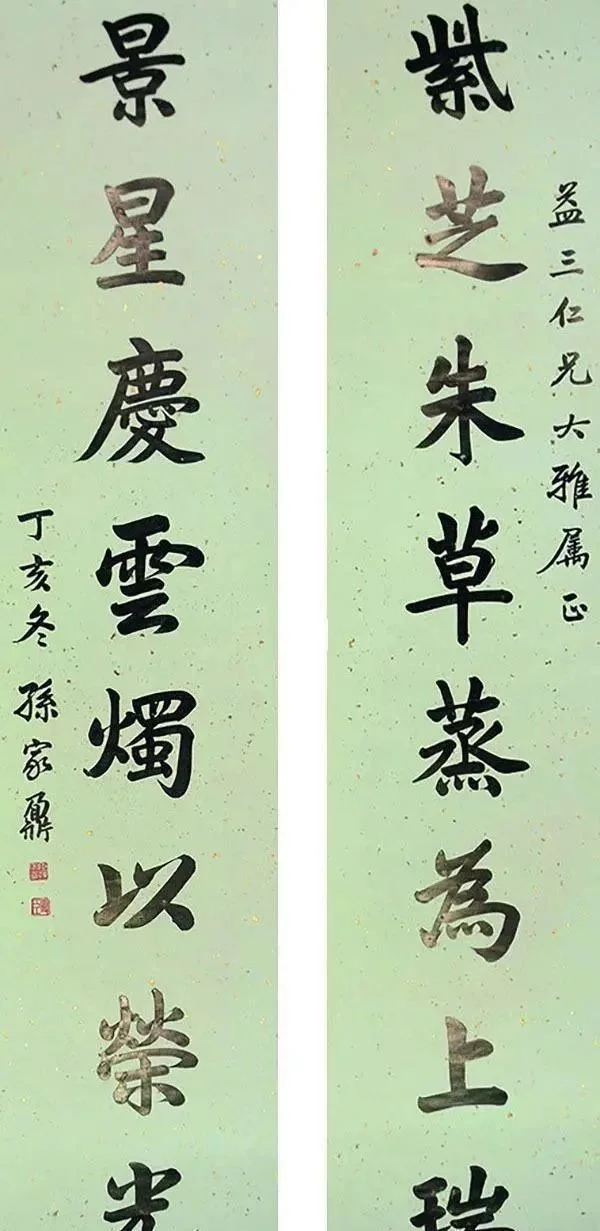 益三仁兄大雅属正
紫芝朱草蒸為上瑞
景星慶雲燭以榮光
丁亥冬孫家鼐